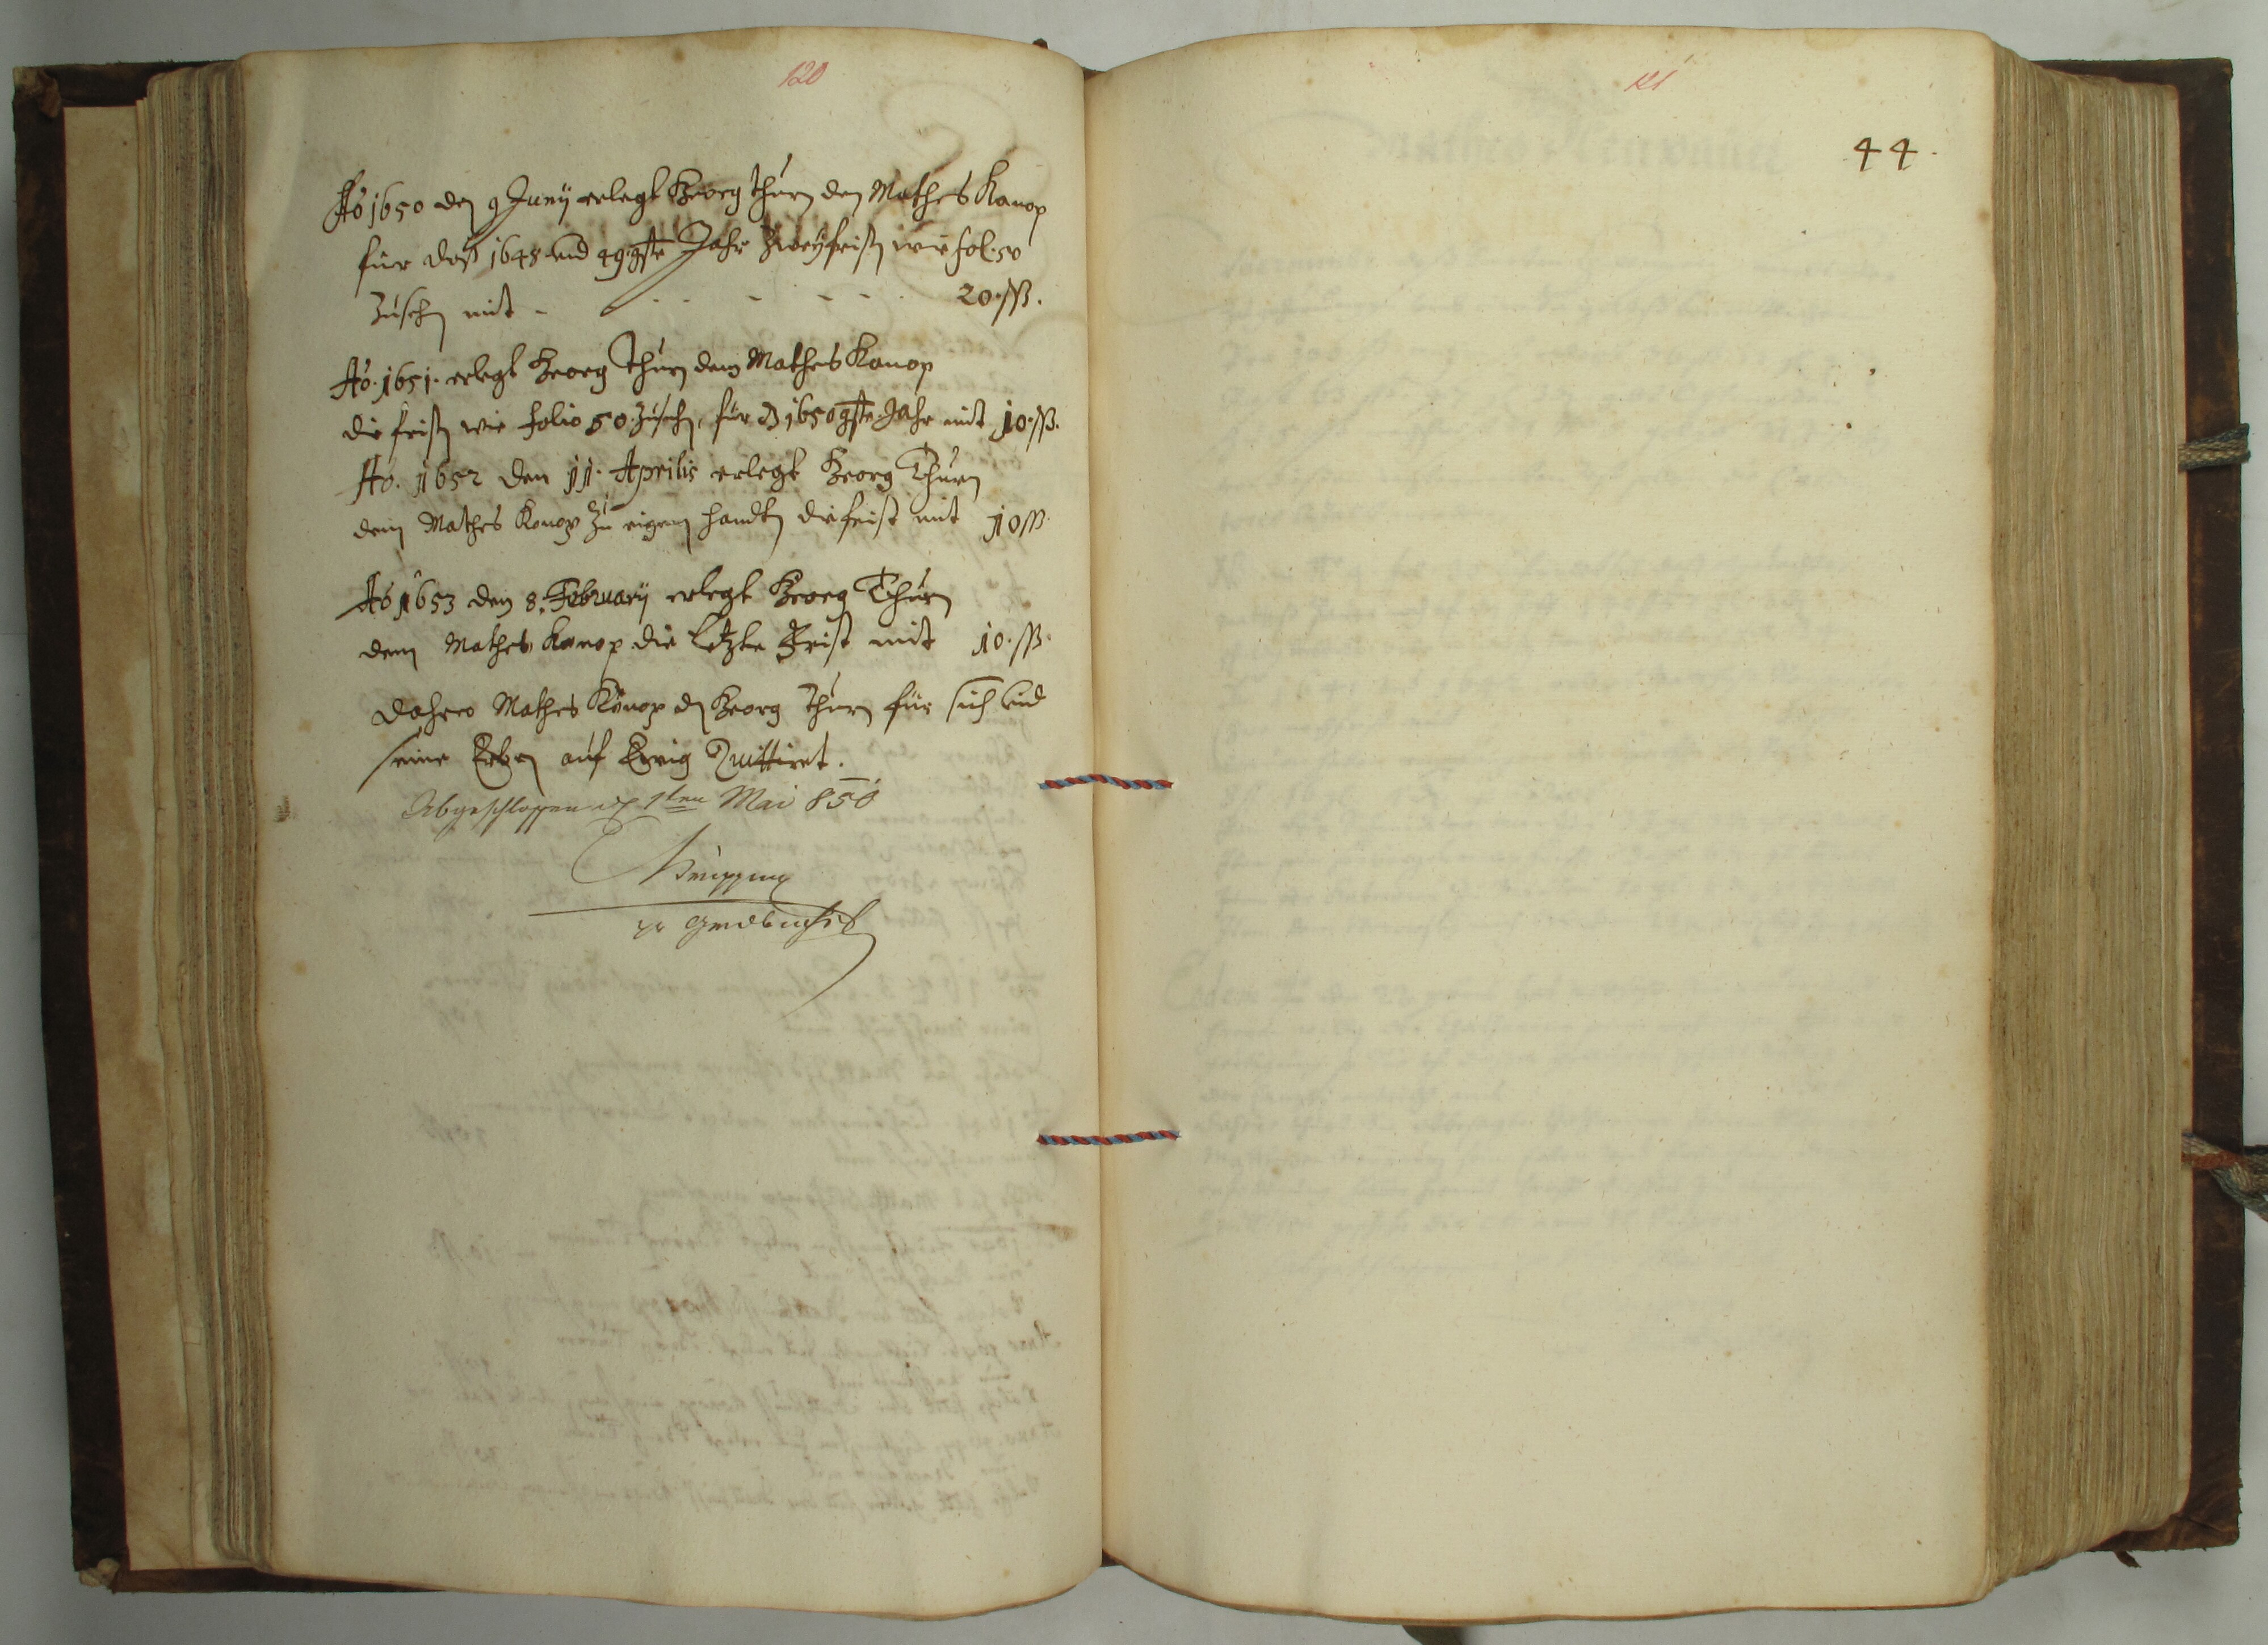 120
Ao 1650 den 9 Junÿ erlegt Georg Thurn dem Mathes Kanop
für daß 1648 und 49gste Jahr Zweÿfristen wie fol. 50
Zusehen mit - - - - - 20 . ßß .
Ao . 1651 . erlegt Georg Thurn dem Mathes Kanop
die fristen wie folio 50 . Zusehen, für d 1650gste Jahr mit 10 . ßß .
Ao . 1652 den 11 . Aprilis erlegt Georg Thurn
dem Mathes Konop Zu eigenen handten die frist mit 10 ßß
Ao 1653 den 8 . Februarÿ erlegt Georg Thurn
dem Mathes Kanop die letzte Frist mit 10 . ßß .
Dahero Mathes Konop den Georg Thurn für sich und
seine Erben auf Ewig Quittiret .
Abgeschlossen 1ten Mai 850
121
44 .